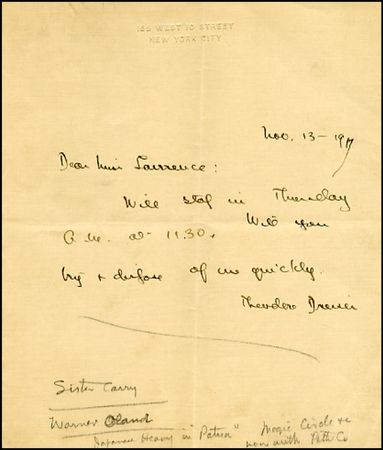 165 WEST 10 STREET
NEW YORK CITY
Nov. 13 - 1917
Dear Miss Lawrence:
Will stop in Thursday
A.M. at 11.30. Will you
try + dispose of me quickly.
Theodore Dreiser
Sister Carry
Warner Oland
Japanese Heavy in "Patria"
Magic Circle +c
now with Pathe Co